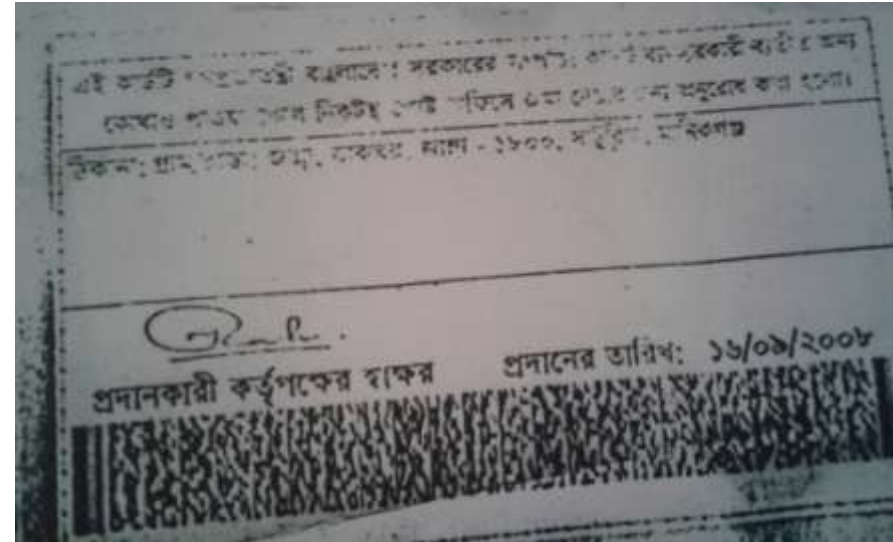 এই কার্ডটি গণপ্রজাতন্ত্রী বাংলাদেশ সরকারের সম্পত্তি। কার্ডটি ব্যবহারকারী ব্যতীত অন্য
কোথাও পাওয়া গেলে নিকটস্থ পোস্ট অফিসে জমা দেবার জন্য অনুরোধ করা হলো।
ঠিকানা: ডাকঘর, - ১৮০০,
প্রদানকারী কর্তৃপক্ষের স্বাক্ষর প্রদানের তারিখ: ১৬/০৯/২০০৮